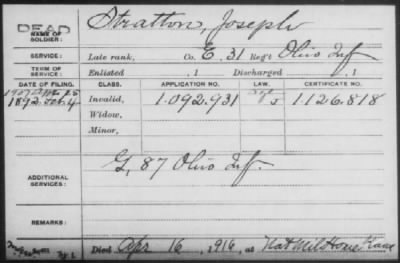 DEAD
NAME OF SOLDIER: Stratton, Joseph
SERVICE: Late rank, Co. E, 31 Reg't Ohio Inf
TERM OF SERVICE: Enlisted , 1 Discharged , 1
DATE OF FILING. CLASS. APPLICATION NO. LAW. CERTIFICATE NO.
1892 Invalid, 1.092.931 1.126.818
Widow,
Minor,
G, 87 Ohio Inf.
ADDITIONAL SERVICES:
REMARKS:
Died Apr 16, 1916, at Nat Mil Home Kans